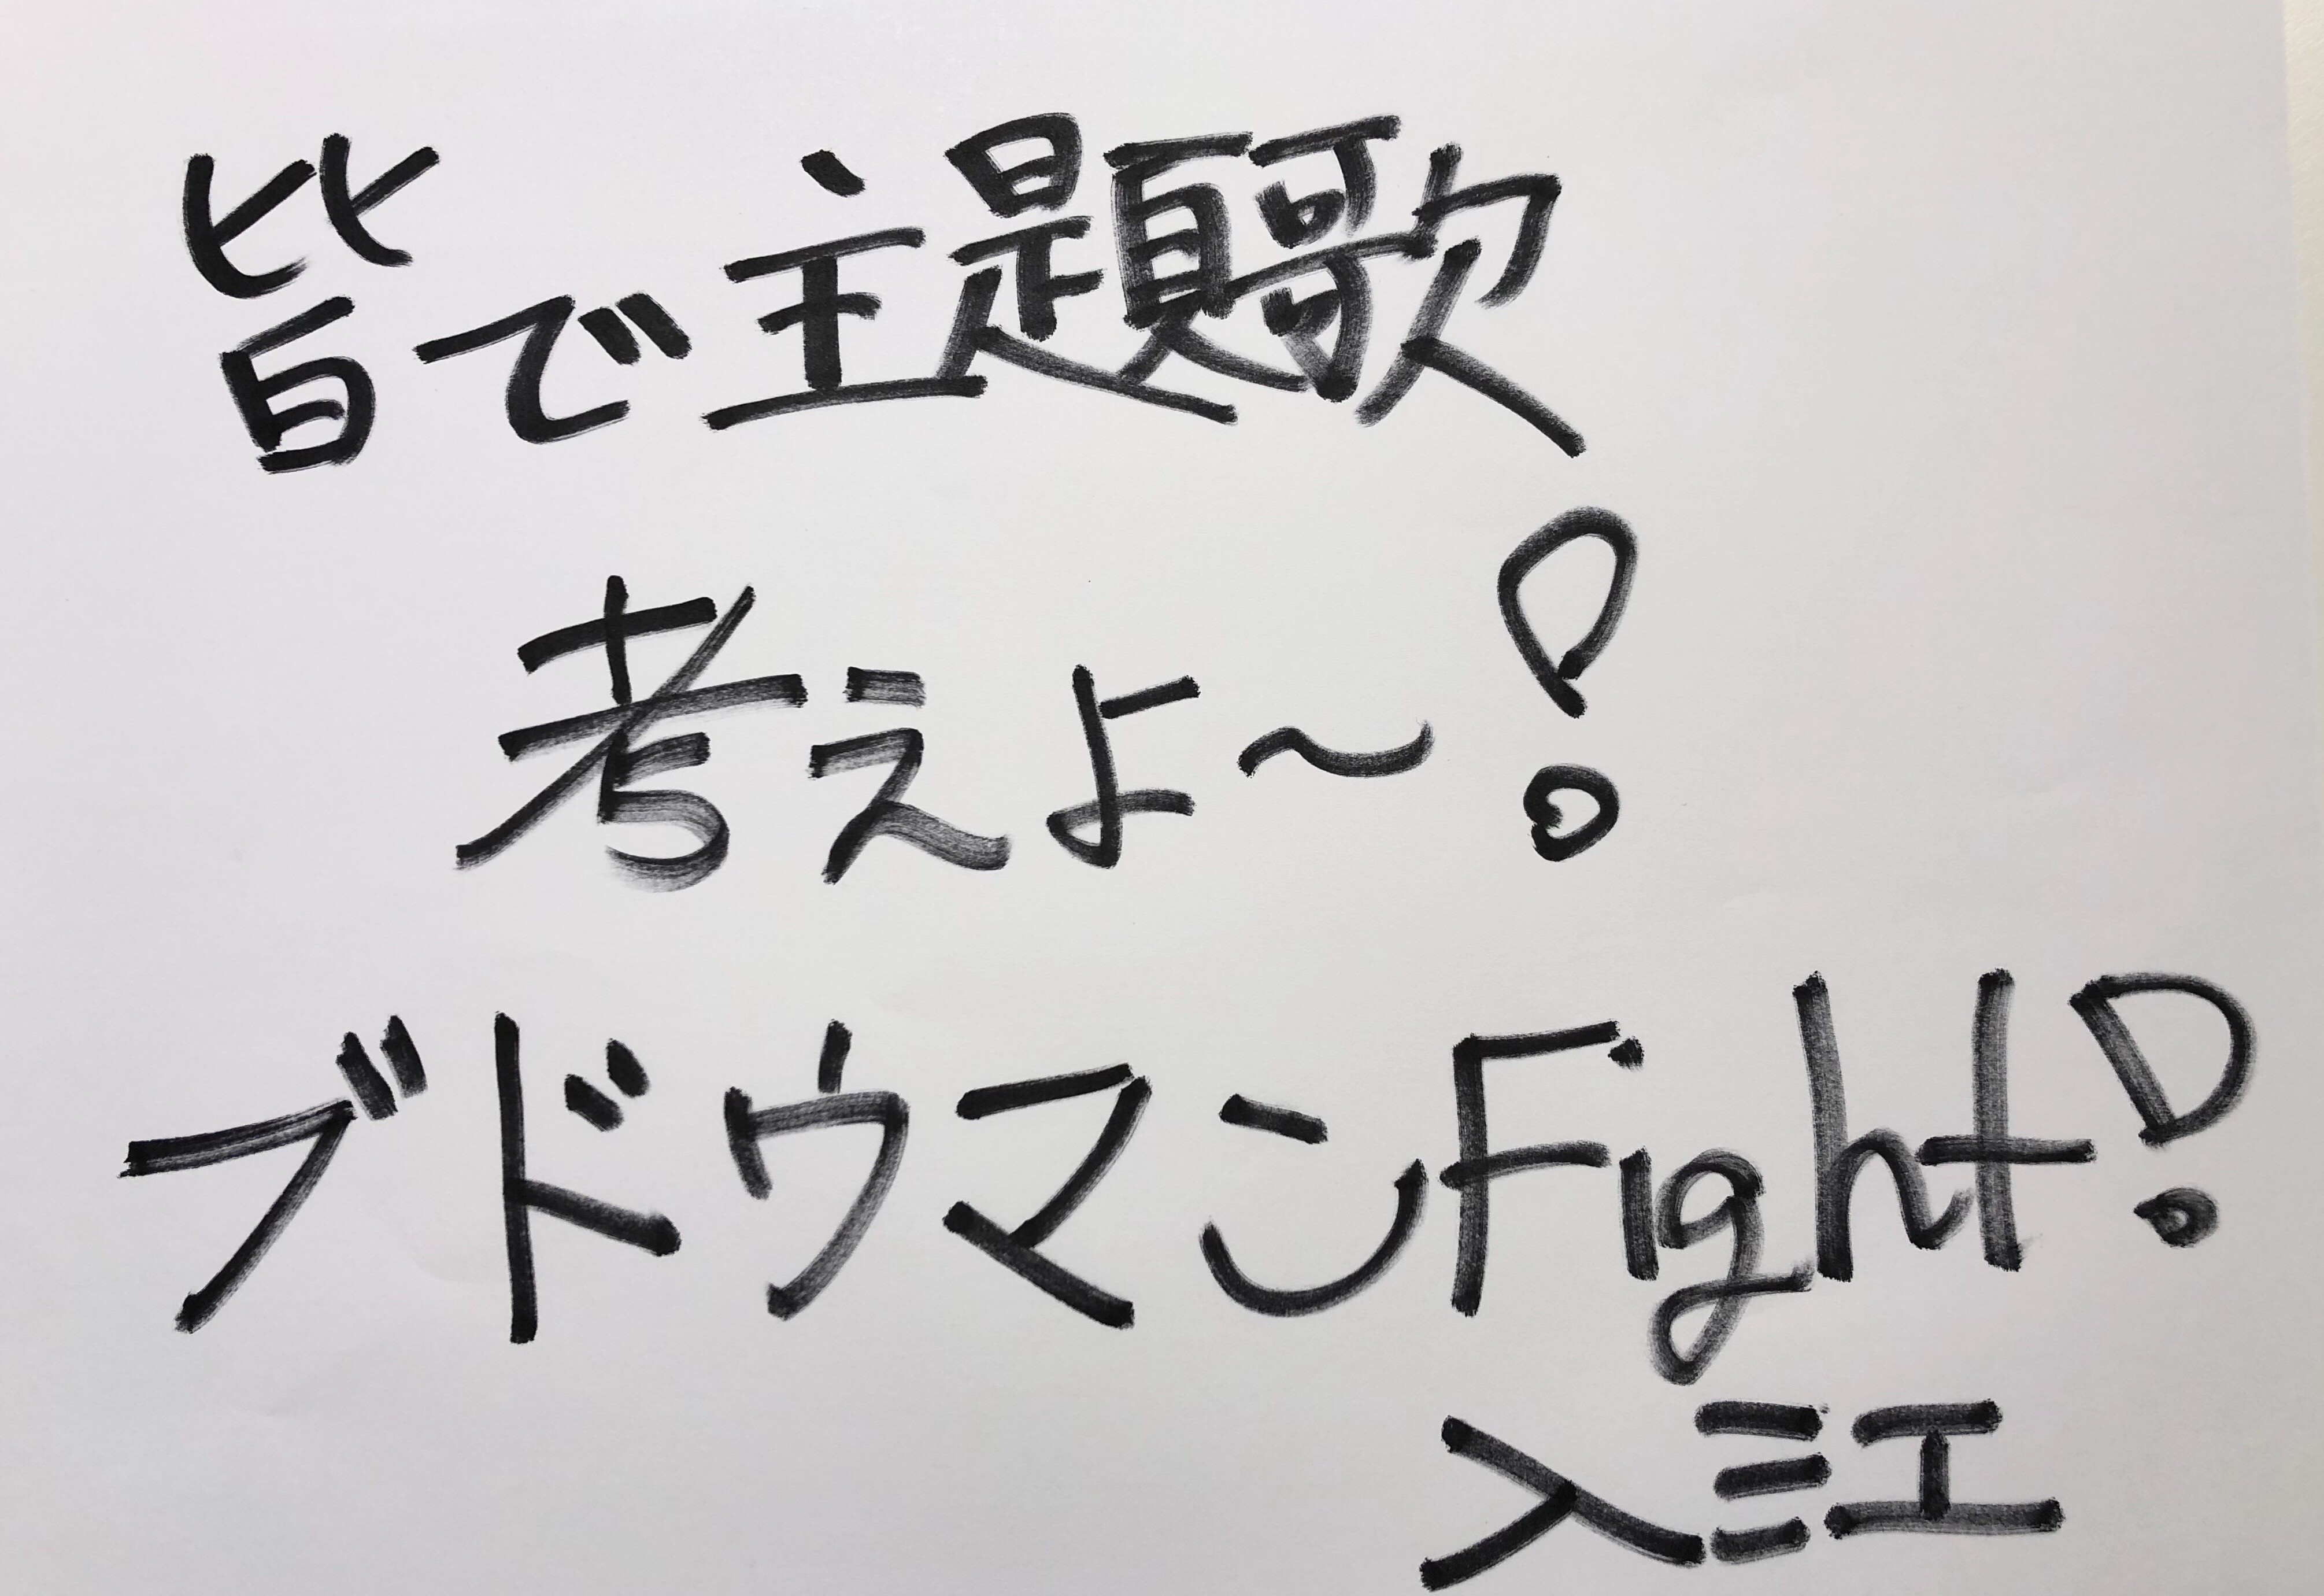 皆で主題歌
考えよ～!
ブドウマンFight!
入江